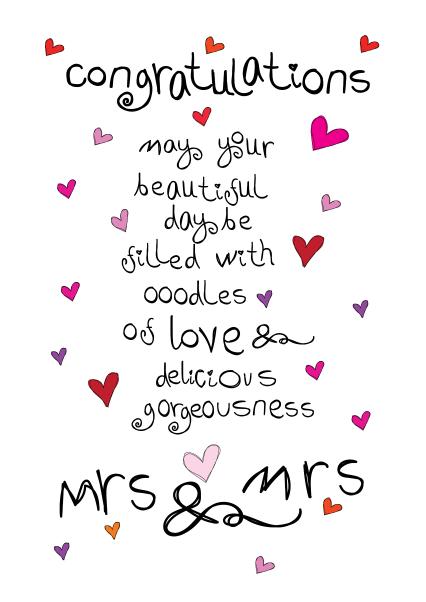 congratulations
may your
beautiful
day be
filled with
ooodles
of love &
delicious
gorgeousness
mrs & mrs